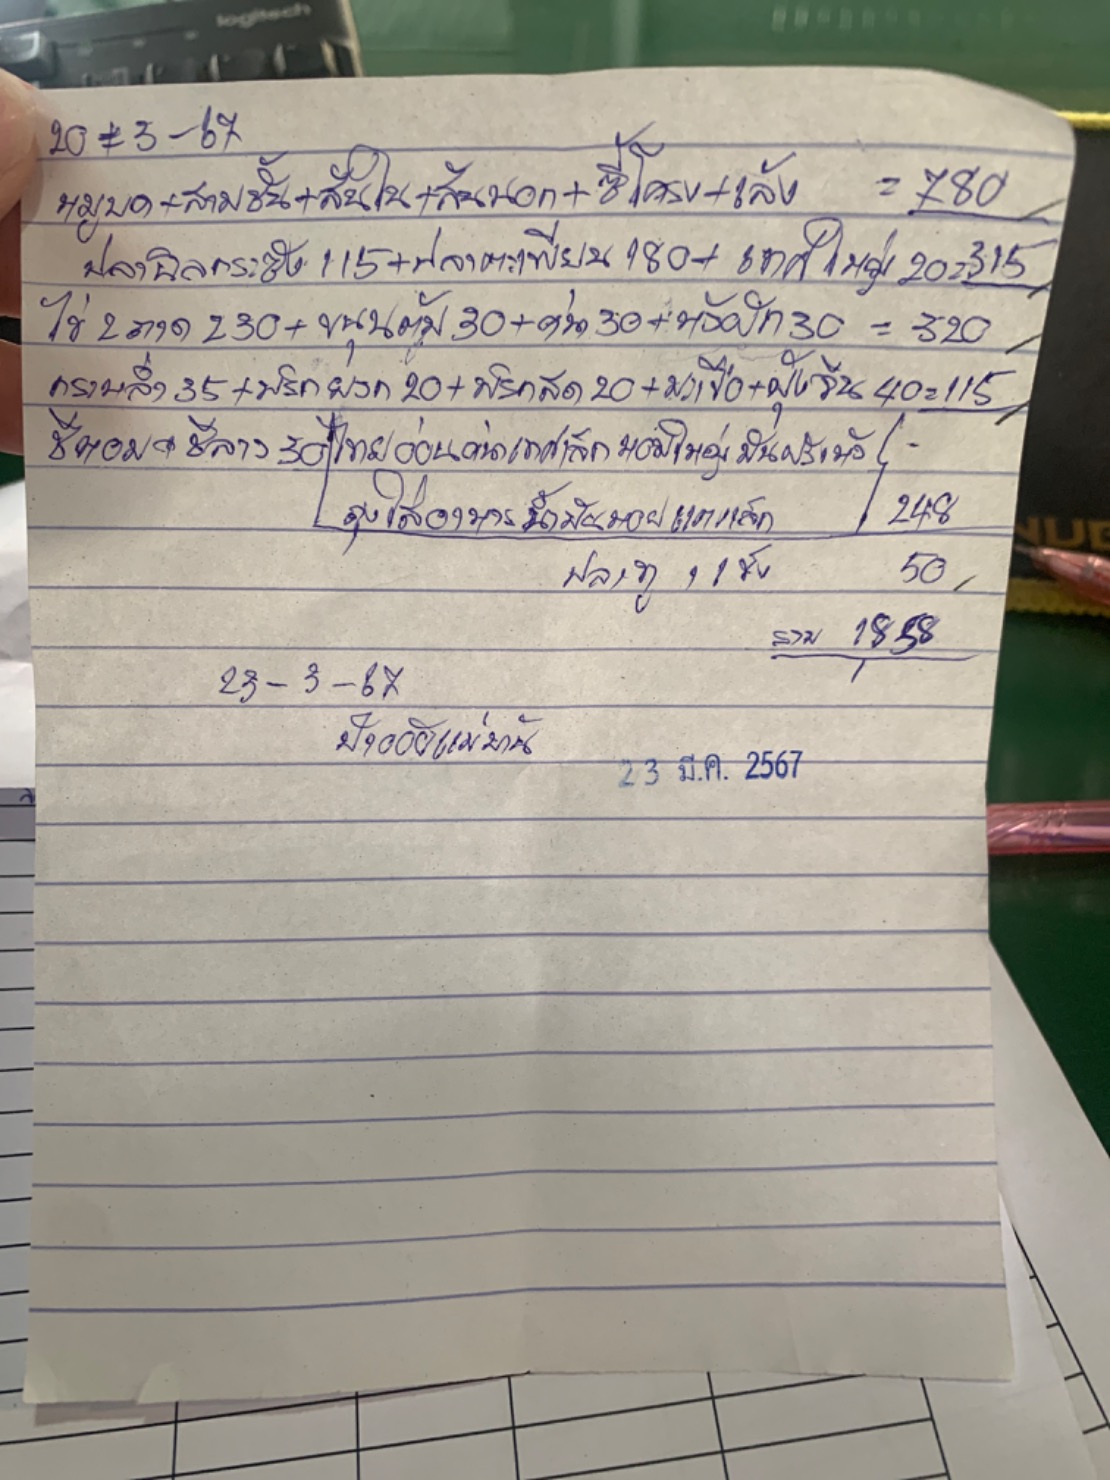 logitech
20-3-67
หมูบด+สามชั้น+สันใน+สันนอก+ซี่โครง+เล้ง = 780
ปลานิลกระชัง 115+ปลาตะเพียน 180+ เทศใหญ่ 20=315
ไข่ 2 ถาด 230+ขนุนต้ม 30+ 30+ 30 = 320
กะหล่ำ 35+พริกหยวก 20+พริกสด 20+มะเขือ+ 40=115
ชีหอม+ชีลาว 30 หอมใหญ่ -
ถุงใส่อาหาร น้ำมันหอย แตงเล็ก 248
ปลาทู 1 ชั่ง 50
รวม 1858
23-3-67
23 มี.ค. 2567